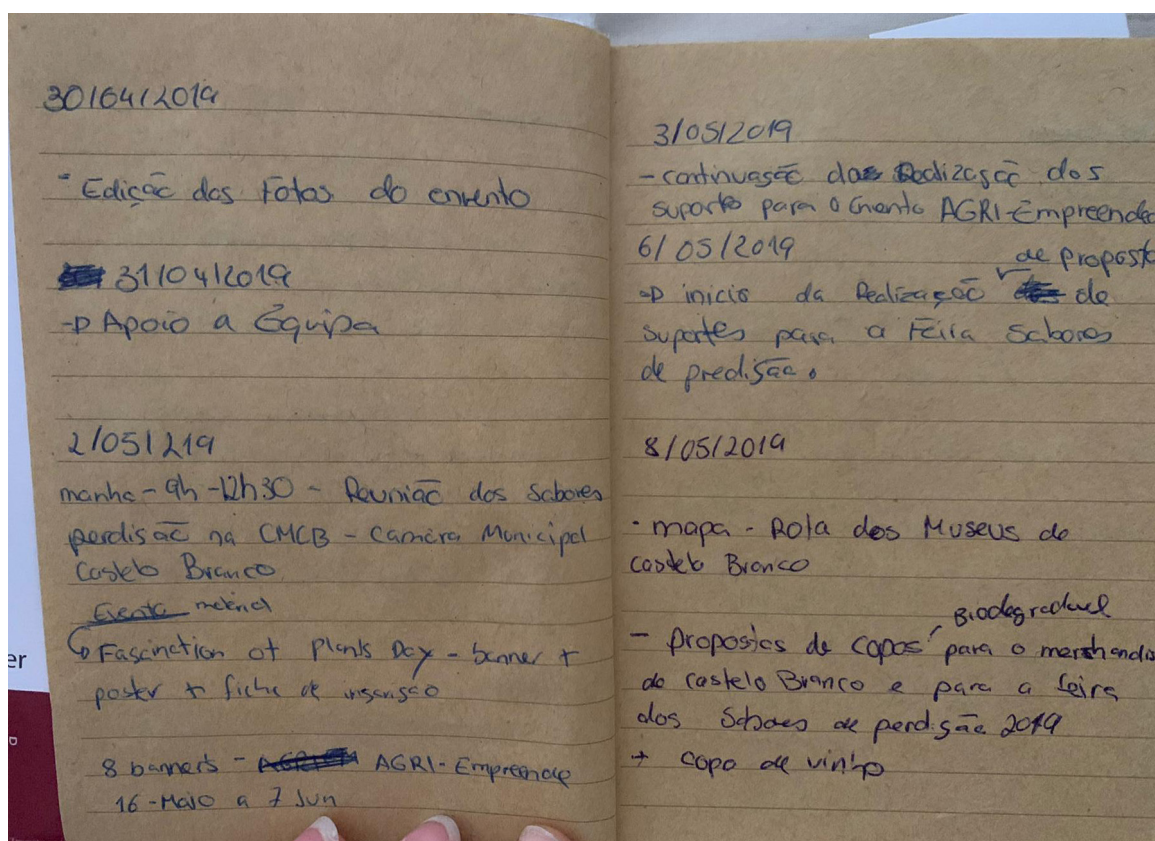 30/04/2019
- Edição das Fotos do envento
31/04/2019
→ Apoio a Equipa
2/05/219
manha - 9h - 12h30 - Reunião dos Sabores
perdisão na CMCB - Camâra Municipal
Castelo Branco
Evento material
Fascinction of Plants Day - banner +
poster + ficha de insarisão
8 banners - AGRI - Empreende
16 - Maio a 7 Jun
3/05/2019
- continuasão das Realização dos
suporte para o evento AGRI-Empreended
6/05/2019
de propost
→ inicio da Realização de
suportes para a Feira Sabores
de predisão.
8/05/2019
- mapa - Rota dos Museus de
castelo Branco
Biodegradavel
- propostas de copos para o merchandis
de castelo Branco e para a feira
dos Sabores de perdisão 2019
+ copo de vinho
er